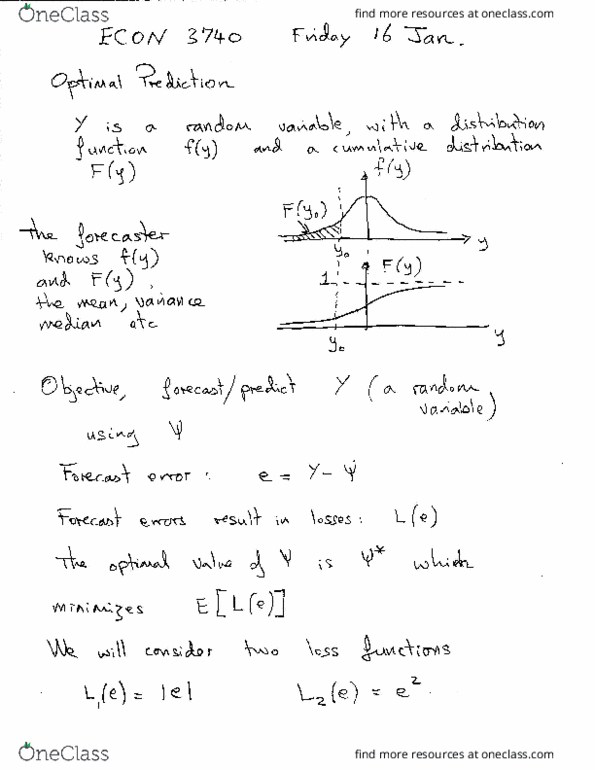 OneClass
find more resources at oneclass.com
ECON 3740 Friday 16 Jan.
Optimal Prediction
Y is a random variable, with a distribution
function f(y) and a cumulative distribution
F(y)
f(y)
F(y₀)
y
y₀
The forecaster
knows f(y)
and F(y),
the mean, variance
median etc
F(y)
1
y
y₀
Objective, forecast/predict Y (a random
variable)
using Ψ
Forecast error: e = Y - Ψ
Forecast errors result in losses: L(e)
The optimal value of Ψ is Ψ* which
minimizes E[L(e)]
We will consider two loss functions
L₁(e) = |e| L₂(e) = e².
OneClass
find more resources at oneclass.com